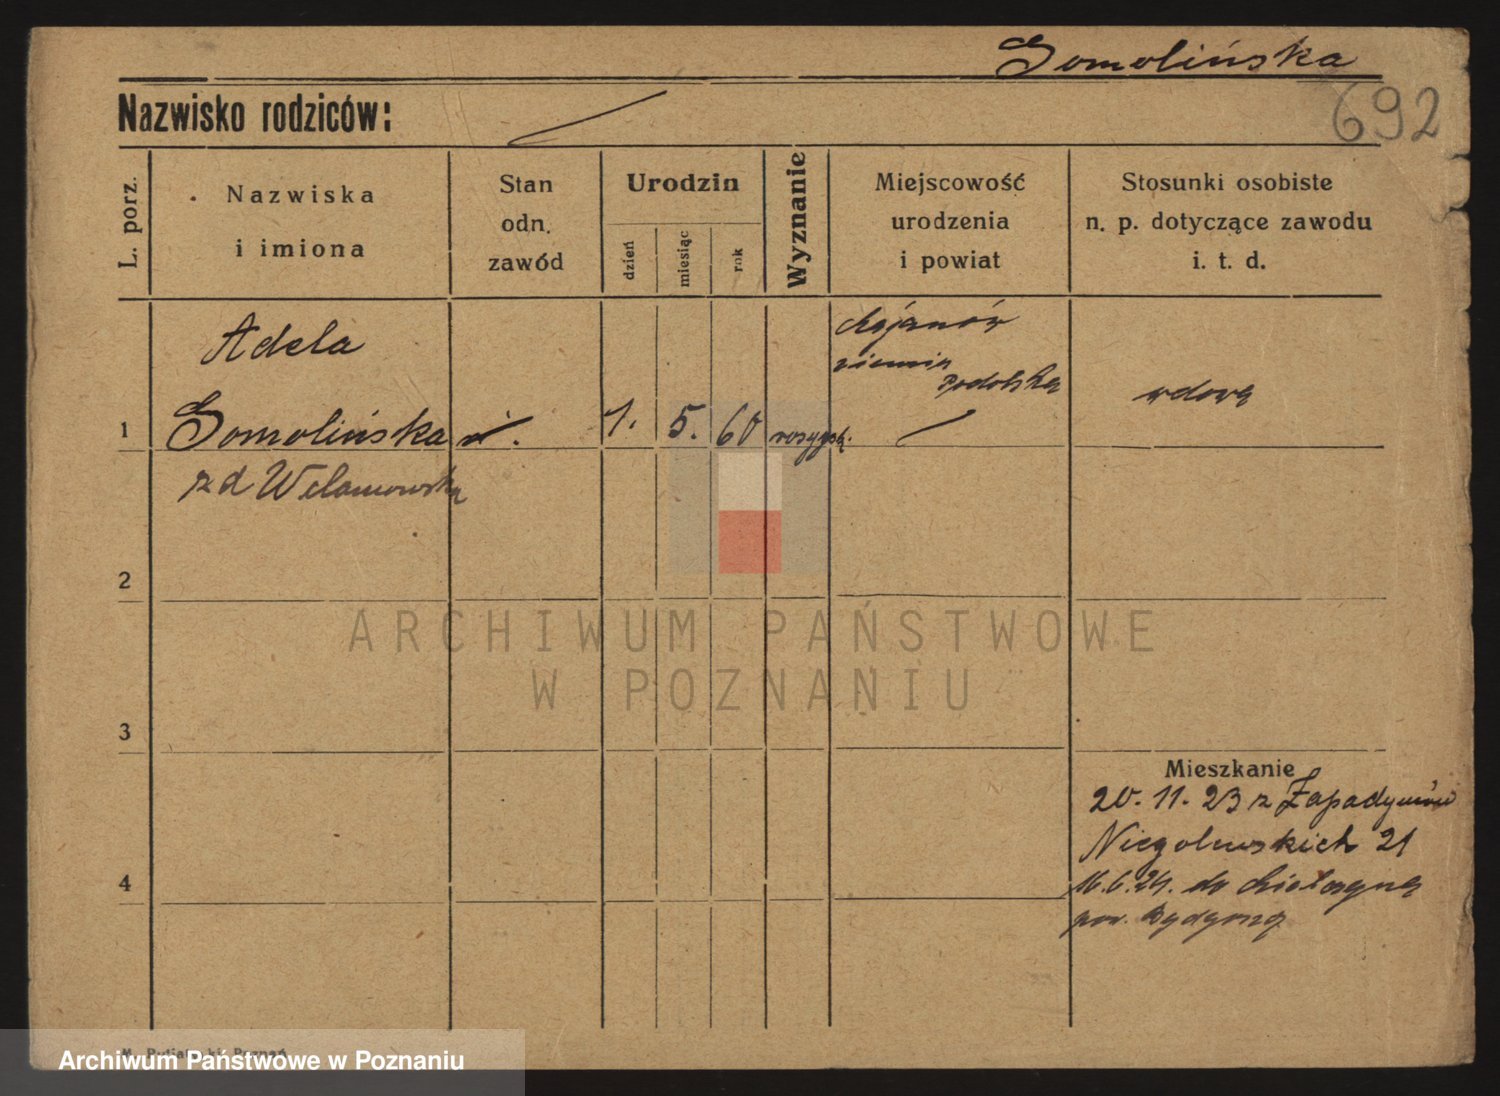 Gomolińska
692
Nazwisko rodziców:
L. porz.
Nazwiska
i imiona
Stan
odn.
zawód
Urodzin
dzień
miesiąc
rok
Wyznanie
Miejscowość
urodzenia
i powiat
Stosunki osobiste
n. p. dotyczące zawodu
i. t. d.
Adela
1 Gomolińska 1. 5. 60
ziemia
Podolska
wdowa
z d
2
3
4
Mieszkanie
20. 11. 23 z
Niegolewskich 21
16. 6. 24. do
pow.
ARCHIWUM PAŃSTWOWE
W POZNANIU
Archiwum Państwowe w Poznaniu